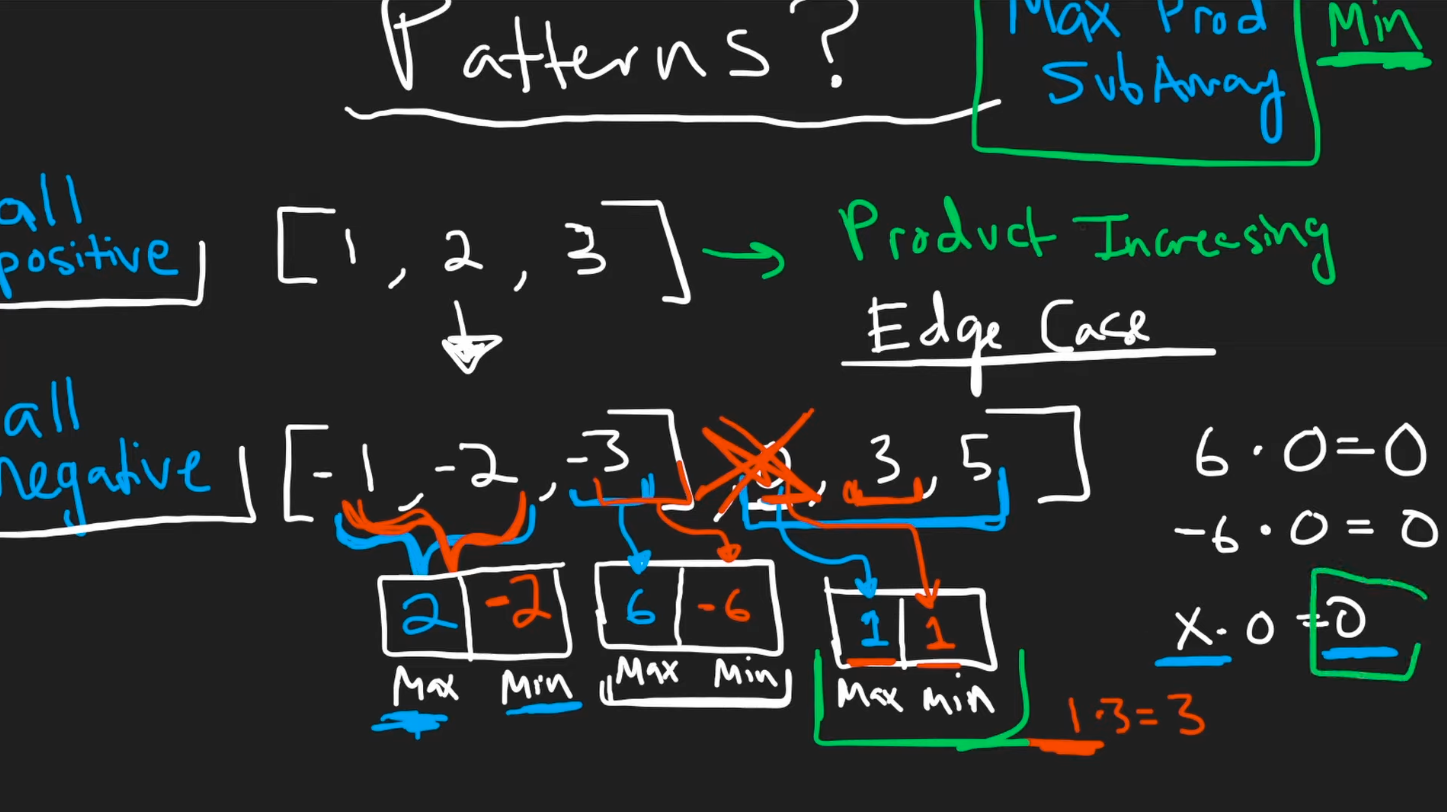 Patterns?
Max Prod
SubArray
Min
all
positive
[1, 2, 3] → Product Increasing
Edge Case
all
negative
[-1, -2, -3] 0, 3, 5]
6 · 0 = 0
-6 · 0 = 0
x · 0 = 0
2 -2
Max Min
6 -6
Max Min
1 1
Max Min
1·3=3